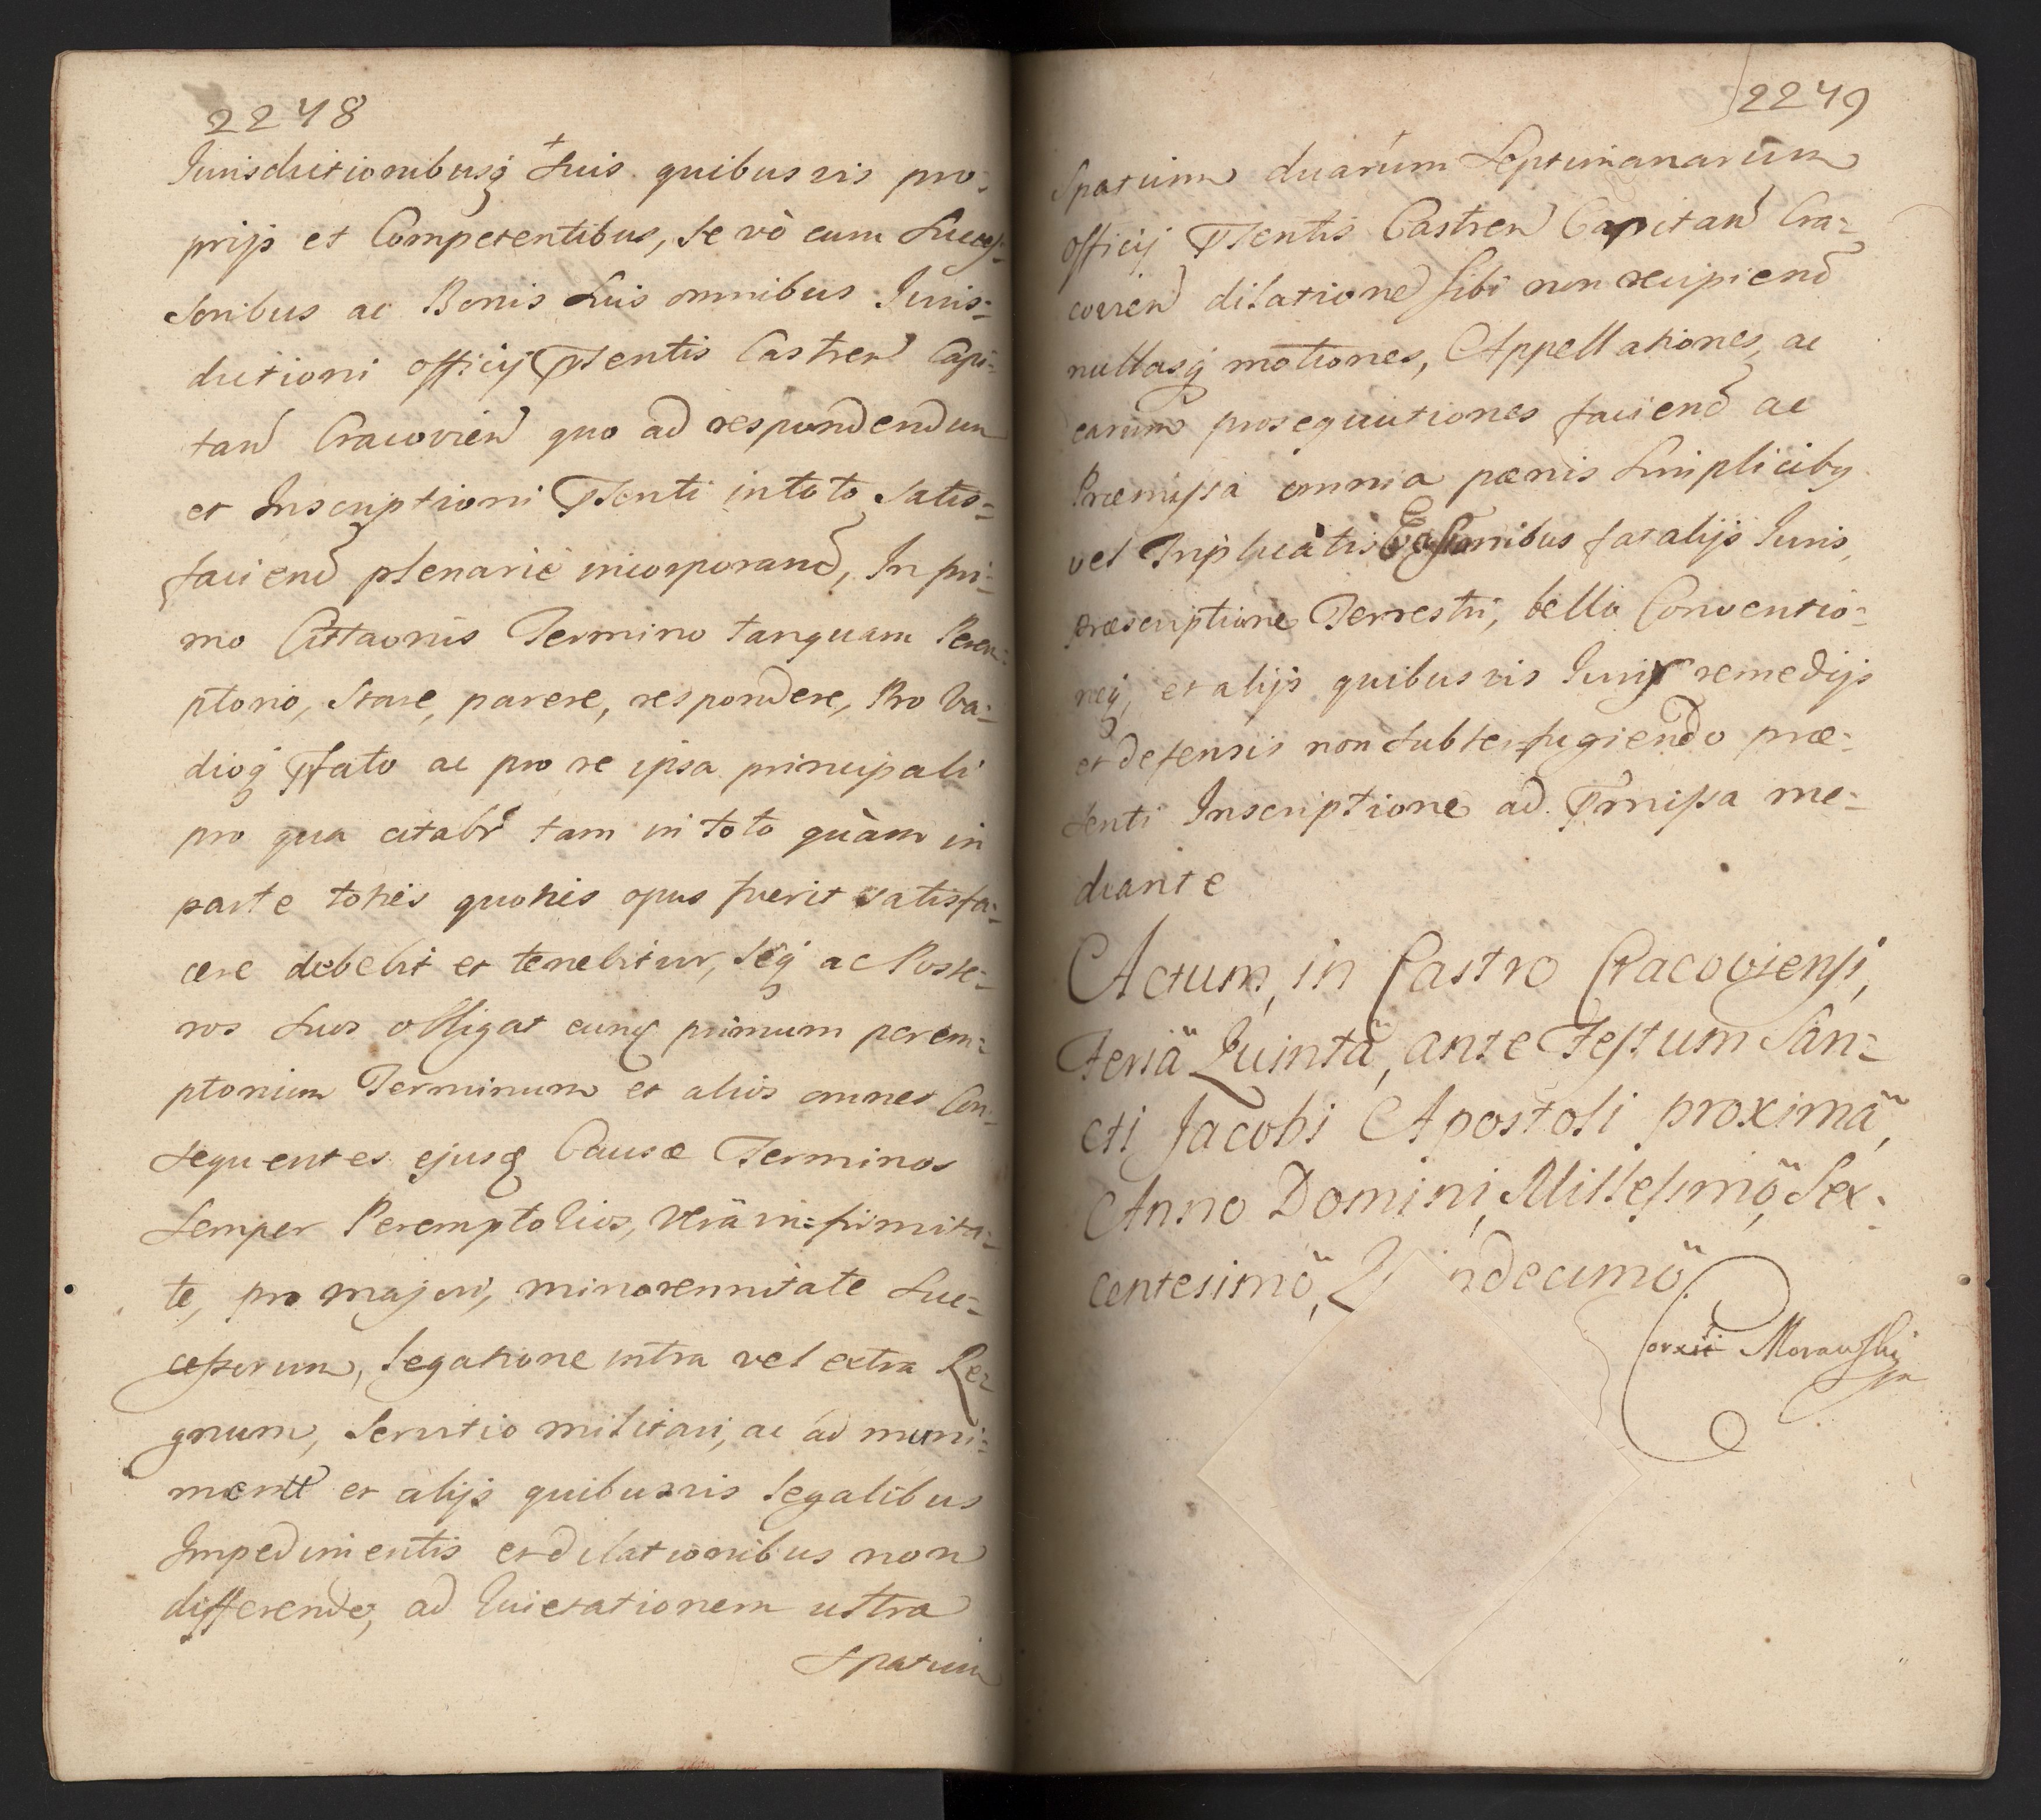 2248
Jurisdictionibusq́ Suis quibusvis pro=
prijs et Competentibus, Se vò cum Succes=
soribus ac Bonis Suis omnibus Juris=
dictioni officij Pñsentis Castreñ Capi=
tañ Cracovień quo ad respondendum
et Inscriptioni Pñsenti in toto Satis=
faciend plenariè incorporand, In pri=
mo Cittaonis Termino tanquam Perem=
ptorio, Stare, parere, respondere, Pro Va=
dioq́ Pfato ac pro re ipsa principali
pro qua citabr tam in toto quàm in
parte toties quoties opus fuerit satisfa=
cere debebit et tenebitur, Seq́ ac Poste=
ros Suos obligat eumq́ primum perem=
ptorium Terminum et alios omnes Con=
sequentes ejusq́ Causæ Terminos
Semper Peremptorios, Verâ in=firmita=
te, pro majori, minorennitate Suc=
cessorum, legatione intra vel extra Re=
gnum, Servitio militari, ac ad muni=
mentt et alijs quibusvis legalibus
Impedimentis et dilationibus non
differendo, ad Quietationem ultra
Spatium
2249
Spatium duarum Septimanarum
officij Pñsentis Castreñ Capitañ Cra=
covieñ dilatione sibi non recipiend
nullasq́ motiones, Appellationes, ac
earum prosequutiones faciend ac
Præmissa omnia pænis Simplicibq
vel Triplicatis Evasionibus fatalijs Juris,
præscriptione Terrestri, bello Conventio=
neq́, et alijs quibusvis Juris remedijs
et defensis non Subterfugiendo præ=
senti Inscriptione ad Pmissa me=
diante
Actum, in Castro Cracoviensi,
Feriâ Quintâ, ante Festum San=
cti Jacobi Apostoli proximâ,
Anno Domini, Millesimô, Sex=
centesimô, ndecimô
Correxit Morawski